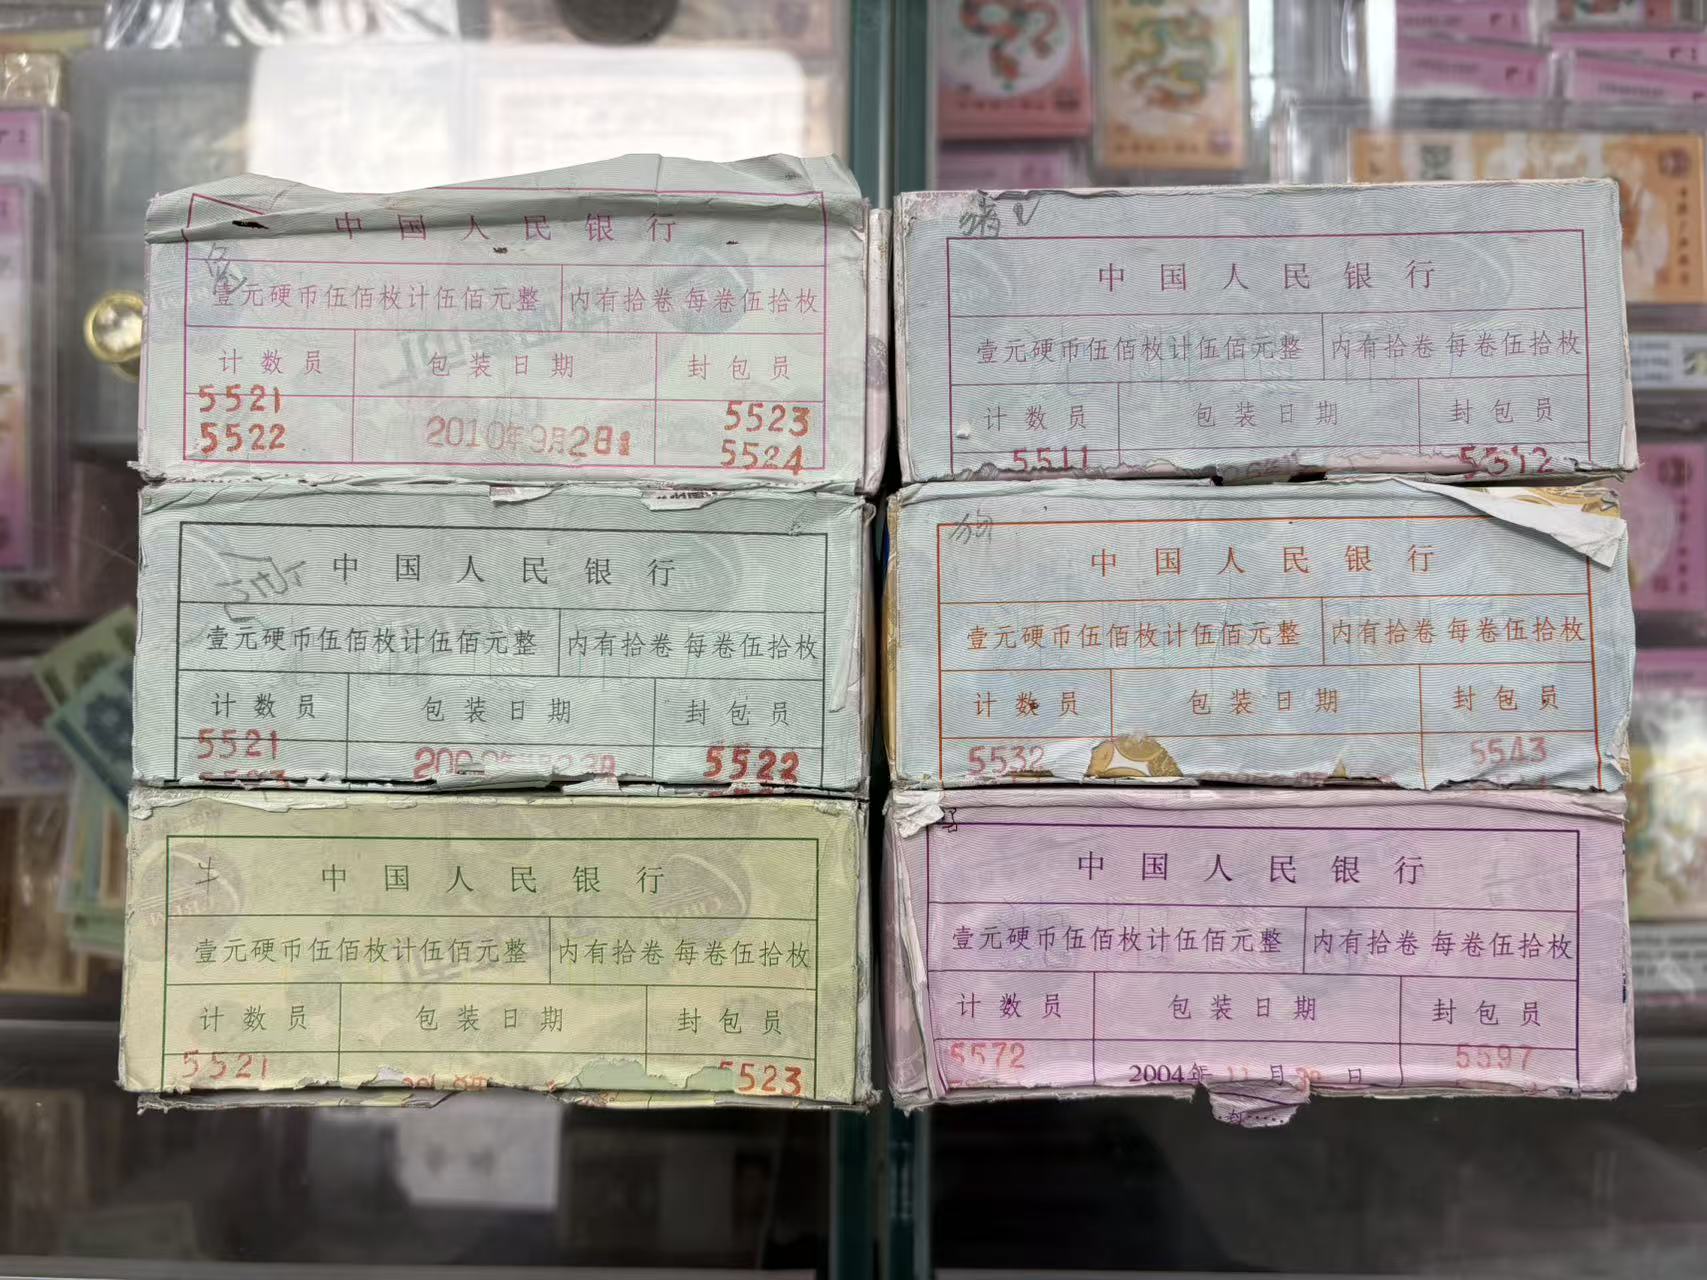 中国人民银行
兔
壹元硬币伍佰枚计伍佰元整 内有拾卷 每卷伍拾枚
计数员 包装日期 封包员
5521 5523
5522 2010年9月2日 5524
中国人民银行
壹元硬币伍佰枚计伍佰元整 内有拾卷 每卷伍拾枚
计数员 包装日期 封包员
5521 5522
牛
中国人民银行
壹元硬币伍佰枚计伍佰元整 内有拾卷 每卷伍拾枚
计数员 包装日期 封包员
5521 5523
猪
中国人民银行
壹元硬币伍佰枚计伍佰元整 内有拾卷 每卷伍拾枚
计数员 包装日期 封包员
5511 5512
狗
中国人民银行
壹元硬币伍佰枚计伍佰元整 内有拾卷 每卷伍拾枚
计数员 包装日期 封包员
5532 5543
中国人民银行
壹元硬币伍佰枚计伍佰元整 内有拾卷 每卷伍拾枚
计数员 包装日期 封包员
5572 5597
2004年11月 日